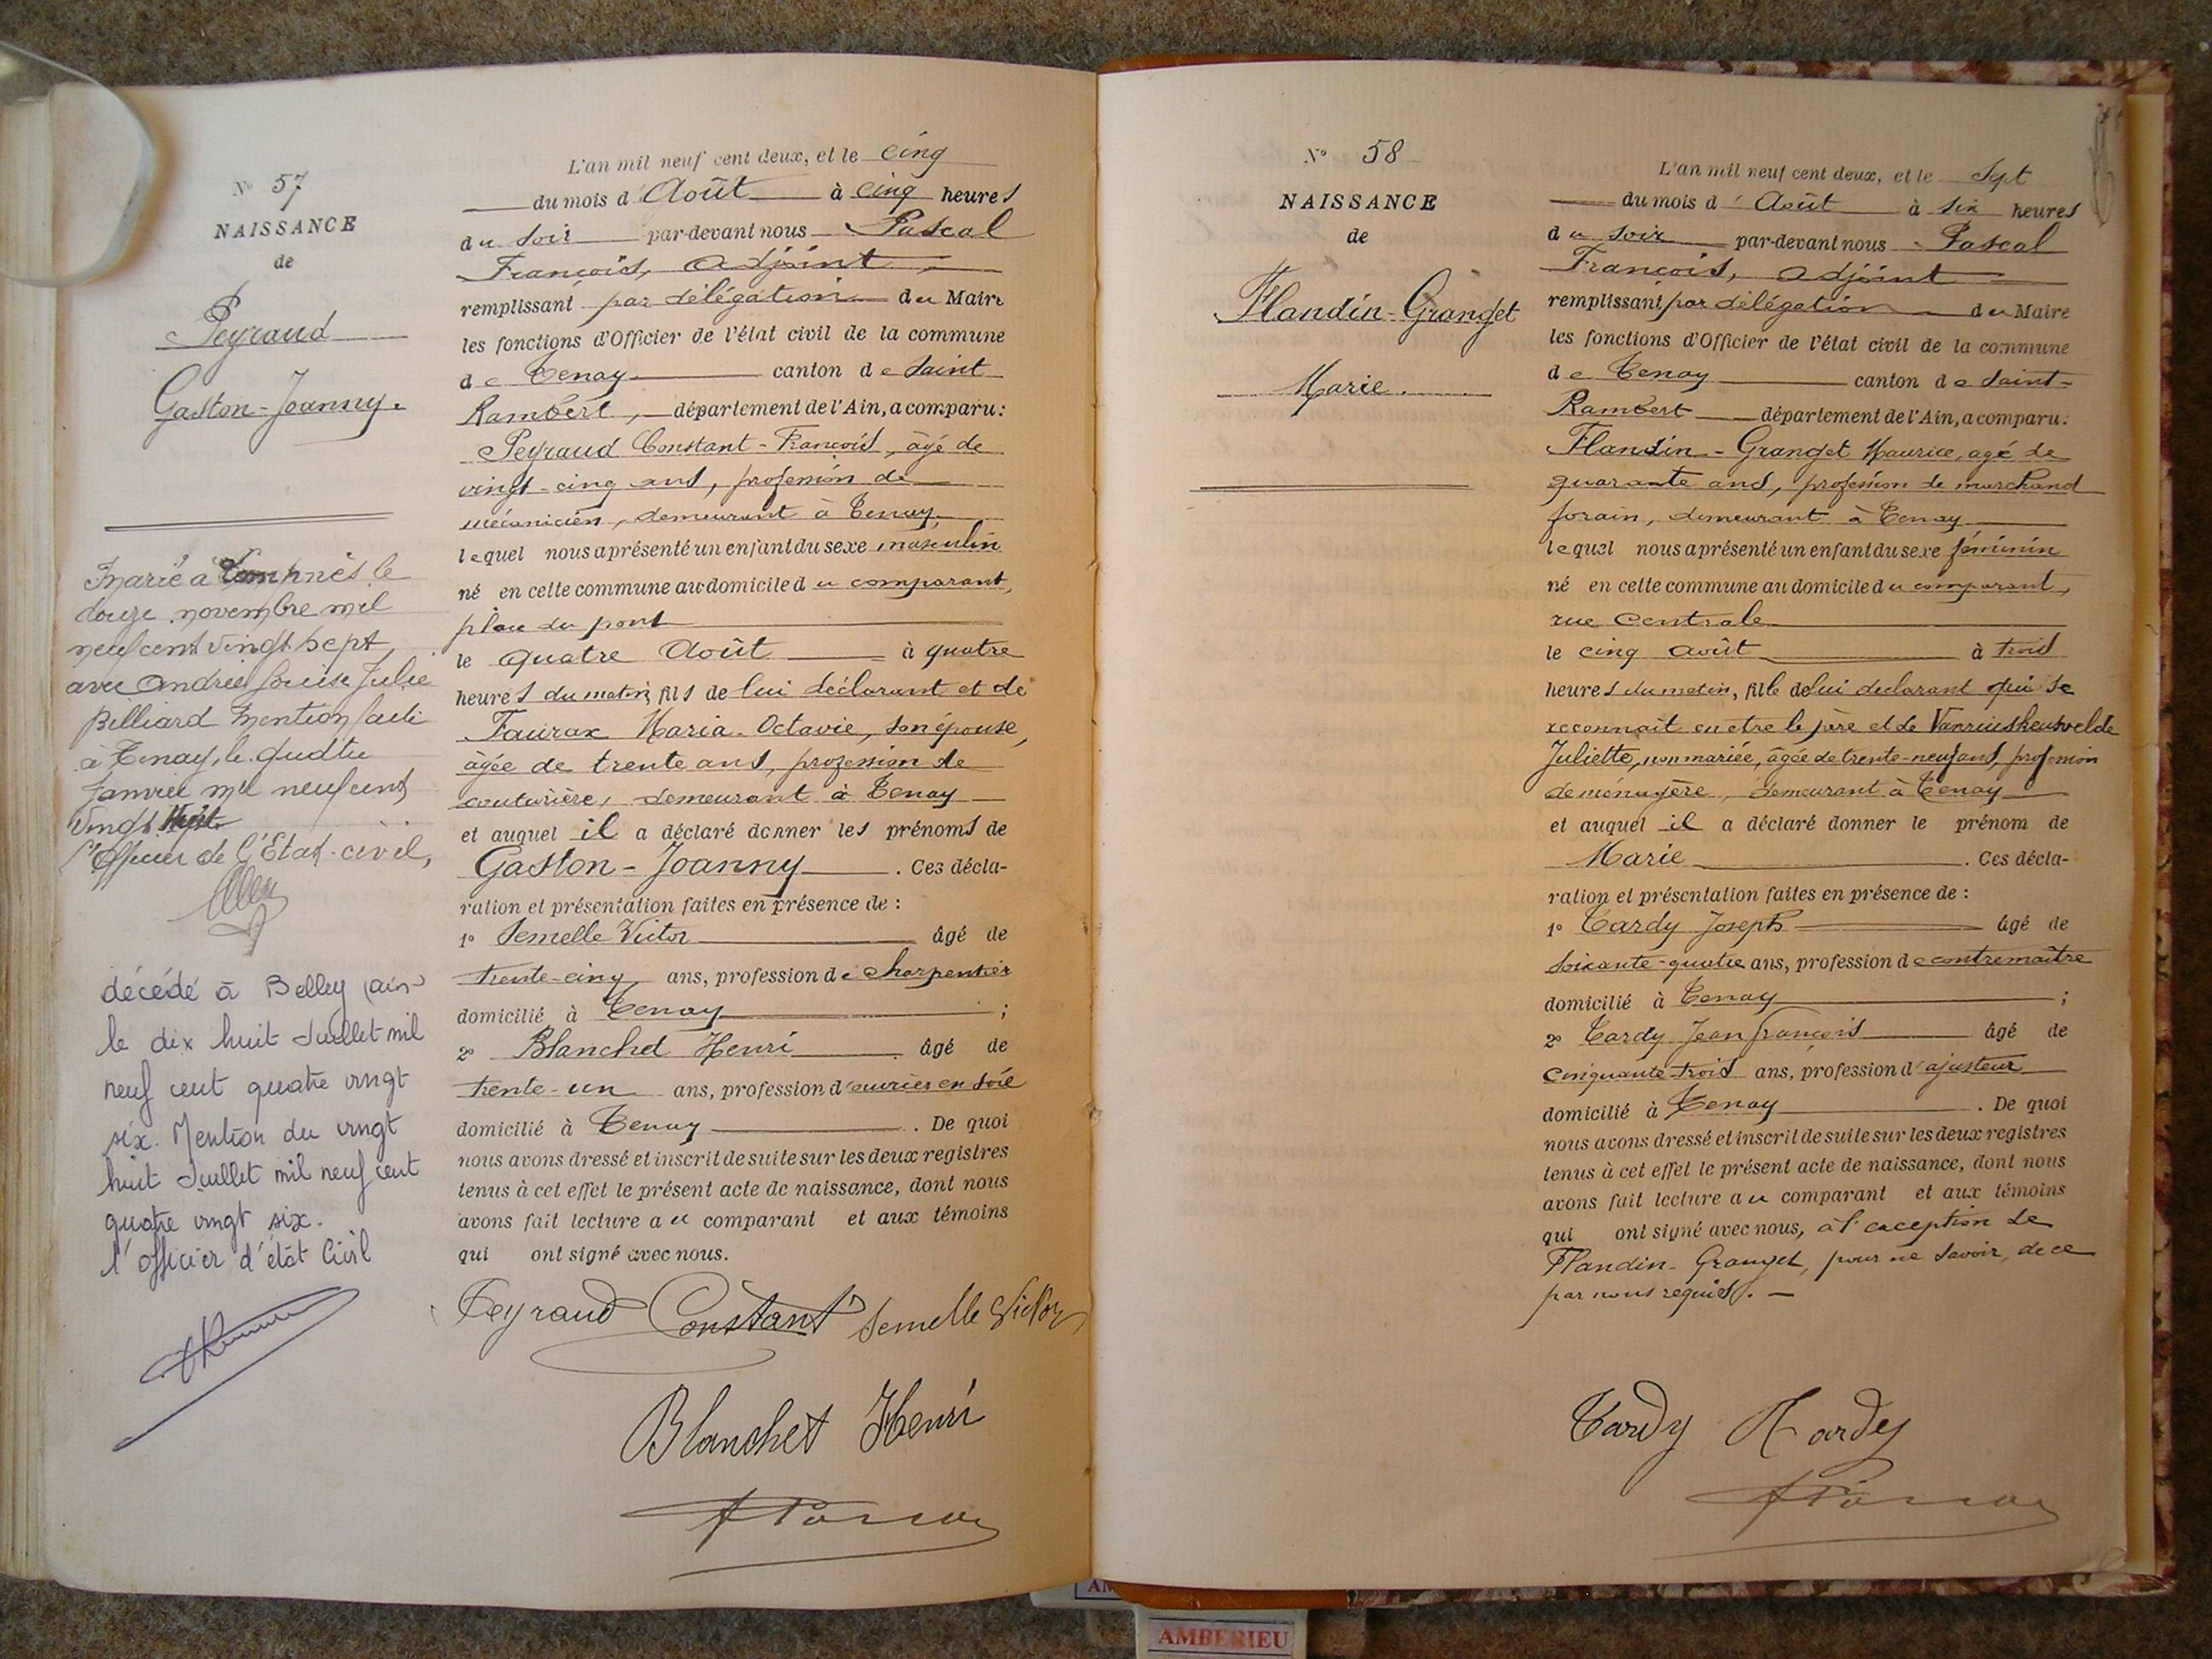 N° 57
NAISSANCE
de
Peyraud
Gaston-Joanny.
Marié à Lompnès le
douze novembre mil
neuf cent vingt sept
avec Andrée Louise Julie
Billiard Mention faite
à Tenay, le quatre
Janvier mil neuf cent
vingt huit
l'Officier de l'Etat-civil,
décédé à Belley (ain)
le dix huit Juillet mil
neuf cent quatre vingt
six. Mention du vingt
huit Juillet mil neuf cent
quatre vingt six.
l'officier d'état Civil
L'an mil neuf cent deux, et le cinq
du mois d'Août à cinq heures
du soir par-devant nous Pascal
François, adjoint
remplissant par délégation du Maire
les fonctions d'Officier de l'état civil de la commune
de Tenay canton de Saint
Rambert, département de l'Ain, a comparu:
Peyraud Constant-François, âgé de
vingt-cinq ans, profession de
mécanicien, demeurant à Tenay,
lequel nous a présenté un enfant du sexe masculin
né en cette commune au domicile du comparant,
place du pont
le quatre Août à quatre
heures du matin, fils de lui déclarant et de
Faurax Maria-Octavie, son épouse,
âgée de trente ans, profession de
couturière, demeurant à Tenay
et auquel il a déclaré donner les prénoms de
Gaston-Joanny. Ces décla-
ration et présentation faites en présence de :
1° Semelle Victor âgé de
trente-cinq ans, profession de charpentier
domicilié à Tenay ;
2° Blanchet Henri âgé de
trente-un ans, profession d'ouvrier en soie
domicilié à Tenay. De quoi
nous avons dressé et inscrit de suite sur les deux registres
tenus à cet effet le présent acte de naissance, dont nous
avons fait lecture au comparant et aux témoins
qui ont signé avec nous.
Peyraud Constant Semelle Victor
Blanchet Henri
N° 58
NAISSANCE
de
Flandin-Granget
Marie.
L'an mil neuf cent deux, et le Sept
du mois d'Août à six heures
du soir par-devant nous Pascal
François, adjoint
remplissant par délégation du Maire
les fonctions d'Officier de l'état civil de la commune
de Tenay canton de Saint-
Rambert département de l'Ain, a comparu:
Flandin-Granget Maurice, agé de
quarante ans, profession de marchand
forain, demeurant à Tenay
lequel nous a présenté un enfant du sexe féminin
né en cette commune au domicile du comparant,
rue Centrale
le cinq août à trois
heures du matin, fille de lui déclarant qui se
reconnait en être le père et de Vanriuskensvelde
Juliette, non mariée, âgée de trente-neuf ans, profession
de ménagère, demeurant à Tenay
et auquel il a déclaré donner le prénom de
Marie. Ces décla-
ration et présentation faites en présence de :
1° Tardy Joseph âgé de
soixante-quatre ans, profession de contremaître
domicilié à Tenay ;
2° Tardy Jean françois âgé de
cinquante-trois ans, profession d'ajusteur
domicilié à Tenay. De quoi
nous avons dressé et inscrit de suite sur les deux registres
tenus à cet effet le présent acte de naissance, dont nous
avons fait lecture au comparant et aux témoins
qui ont signé avec nous, à l'exception de
Flandin-Granget, pour ne savoir, de ce
par nous requis. —
Tardy Tardy
AMBERIEU